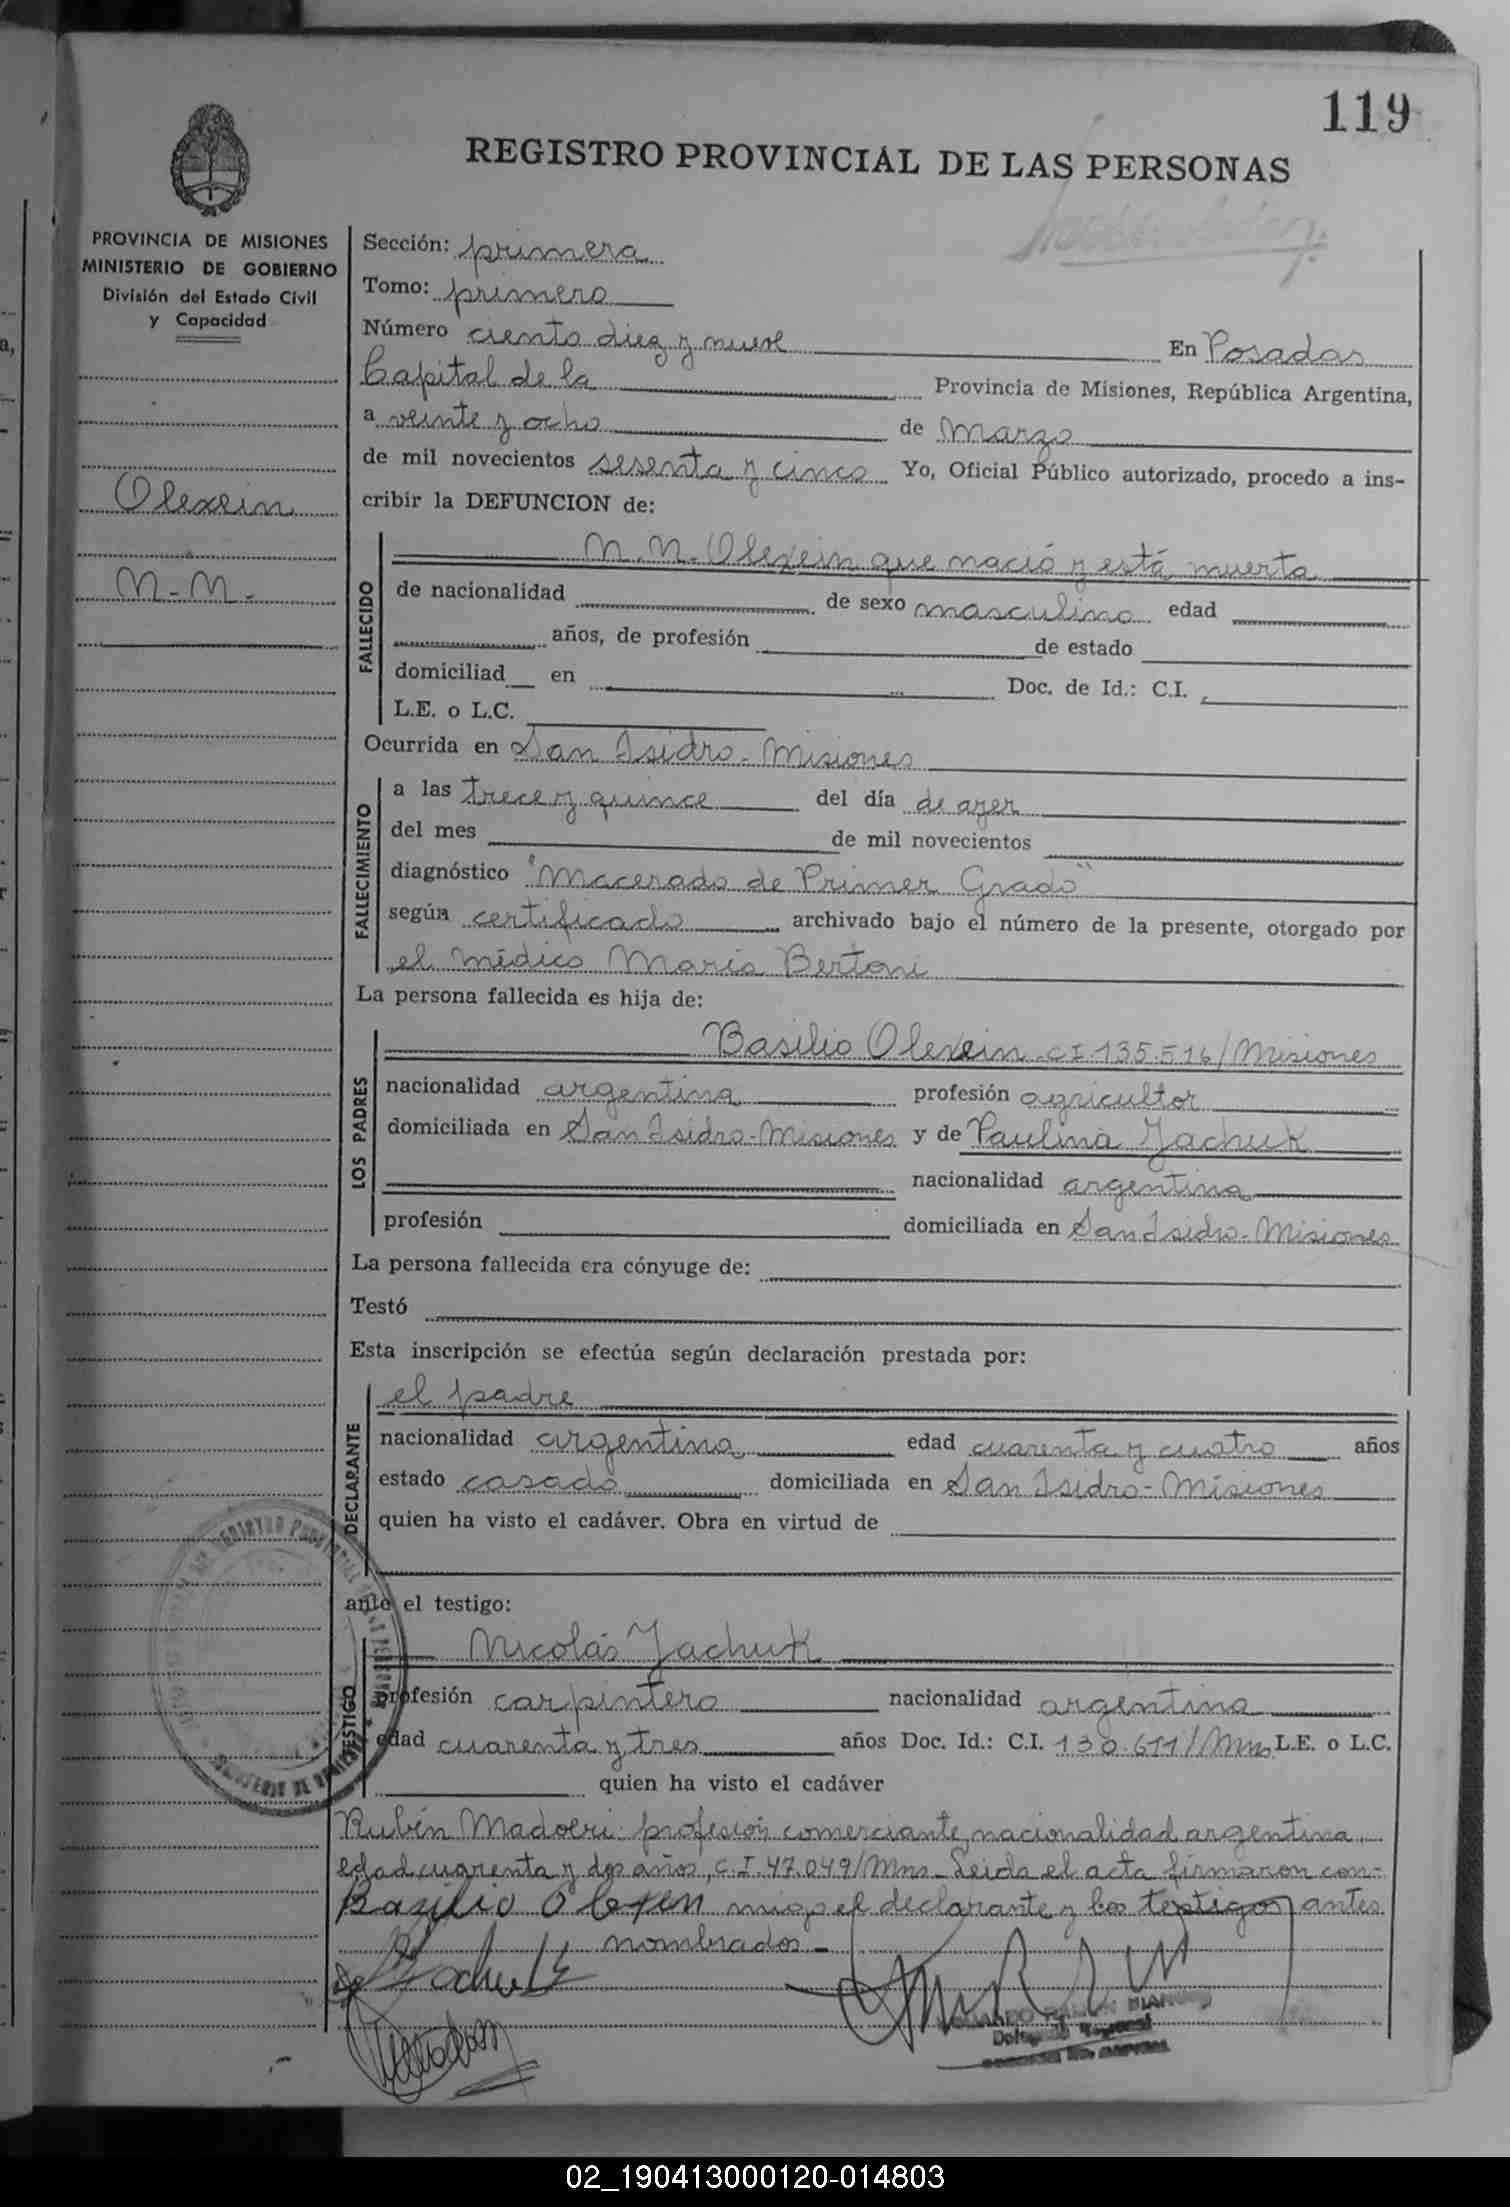 119
REGISTRO PROVINCIAL DE LAS PERSONAS
PROVINCIA DE MISIONES
MINISTERIO DE GOBIERNO
División del Estado Civil
y Capacidad
Olexein
N.-N.-
Sección: primera
Tomo: primero
Número ciento diez y nueve En Posadas
Capital de la Provincia de Misiones, República Argentina,
a veinte y ocho de Marzo
de mil novecientos sesenta y cinco Yo, Oficial Público autorizado, procedo a ins-
cribir la DEFUNCION de:
FALLECIDO
N.N. Olexein que nació y está muerta
de nacionalidad de sexo masculino edad
años, de profesión de estado
domiciliad en Doc. de Id.: C.I.
L.E. o L.C.
Ocurrida en San Isidro - Misiones
FALLECIMIENTO
a las trece y quince del día de ayer
del mes de mil novecientos
diagnóstico "Macerado de Primer Grado"
según certificado archivado bajo el número de la presente, otorgado por
el médico Mario Bertoni
La persona fallecida es hija de:
LOS PADRES
Basilio Olexein C.I. 135.516/Misiones
nacionalidad argentina profesión agricultor
domiciliada en San Isidro - Misiones y de Paulina Jachuk
nacionalidad argentina
profesión domiciliada en San Isidro - Misiones
La persona fallecida era cónyuge de:
Testó
Esta inscripción se efectúa según declaración prestada por:
DECLARANTE
el padre
nacionalidad argentina edad cuarenta y cuatro años
estado casado domiciliada en San Isidro - Misiones
quien ha visto el cadáver. Obra en virtud de
ante el testigo:
TESTIGO
Nicolás Jachuk
profesión carpintero nacionalidad argentina
edad cuarenta y tres años Doc. Id.: C.I. 130.611/Mns L.E. o L.C.
quien ha visto el cadáver
Rubén Madoeri: profesión comerciante, nacionalidad argentina
edad cuarenta y dos años, C.I. 47.049/Mns - Leida el acta firmaron con-
Basilio Olexen migo el declarante y los testigos antes
nombrados -
Jachuk
Delegado Regional
02_190413000120-014803